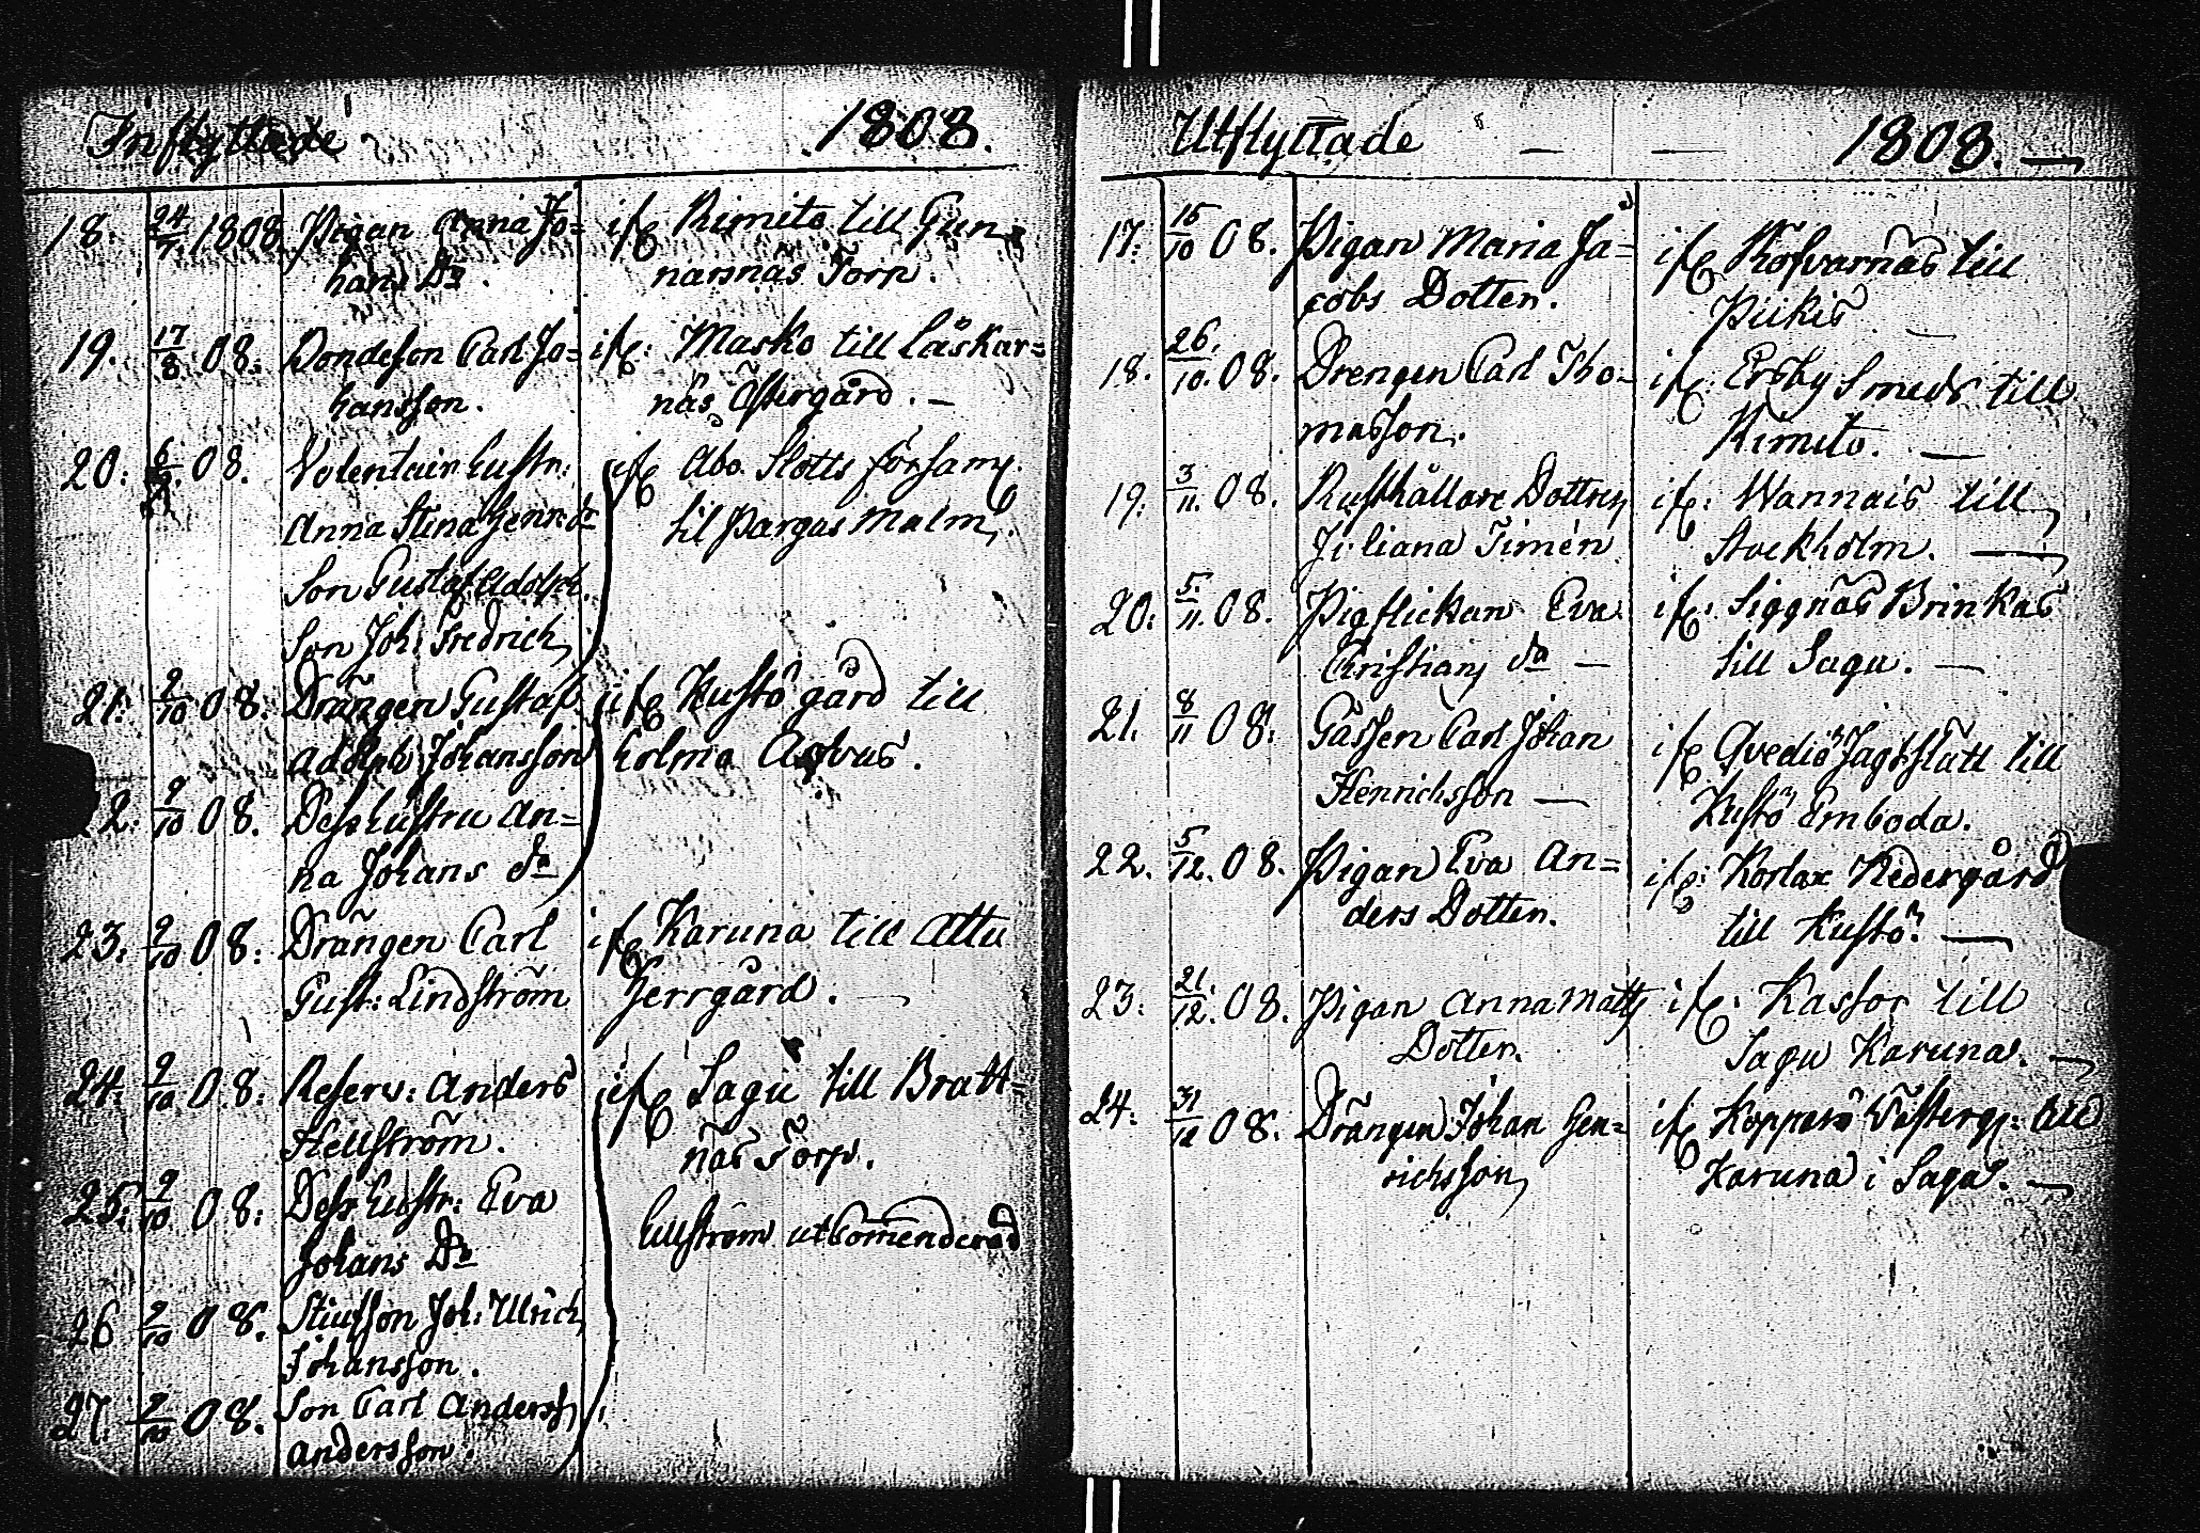 Inflyttade 1808.
18. 24/7. 1808. Pigan Anna Jo=
hans Dr.
ifr. Kimito till Gun=
narsnäs Torp.
19. 17/8. 08. Bondeson Carl Jo=
hansson.
ifr: Masko till Låskar=
näs Östergård. —
20: 6/ 08. Volentair hustr:
Anna Stina Henr: dr
Son Gustaf Adolph.
Son Joh: Fredrich
ifr Åbo Slotts församl.
til Pargas Malm.
21: 9/10 08. Drängen Gustaf
Adolph Johansson
ifr Kustö gård till
holma
22: 9/10 08. Dess hustru An=
na Johans dr
23: 9/10 08: Drängen Carl
Gust: Lindström
ifr Karuna till Attu
Herrgård. —
24: 9/10 08: Reserv: Anders
Hellström.
ifr Sagu till Bratt=
näs Torp.
25: 9/10 08: Dess hustr: Eva
Johans Dr
Hellström utkomenderad
26 9/10 08. Stiufson Joh: Ulrich
Johansson.
27: 9/10 08. Son Carl Anderss
Andersson.
Utflyttade — — 1808. —
17: 15/10 08. Pigan Maria Ja=
cobs Dotter.
ifr Kofvarnäs till
Piikis —
18. 26./10. 08. Drengen Carl Tho=
masson.
ifr: Ersby Smeds till
Kimito. —
19: 3/11. 08. Rusthållare Dottren
Juliana Timén
ifr: Wannais till
Stockholm. —
20: 5/11. 08. Pigflickan Eva
Christians dr —
ifr: Siggnäs Brinkas
till Sagu. —
21. 8/11 08. Gåssen Carl Johan
Henrichsson —
ifr Qvediö Jagtslätt till
Kustö Emboda.
22. 5/12. 08. Pigan Eva An=
ders Dotter.
ifr: Korlax Nedergård
till Kustö. —
23: 21./12. 08. Pigan Anna Matts
Dotter.
ifr: Kassor till
Sagu Karuna. —
24: 31/12 08. Drängen Johan Hen=
richsson
ifr Kopparö Västerg: till
Karuna i Sagu. —